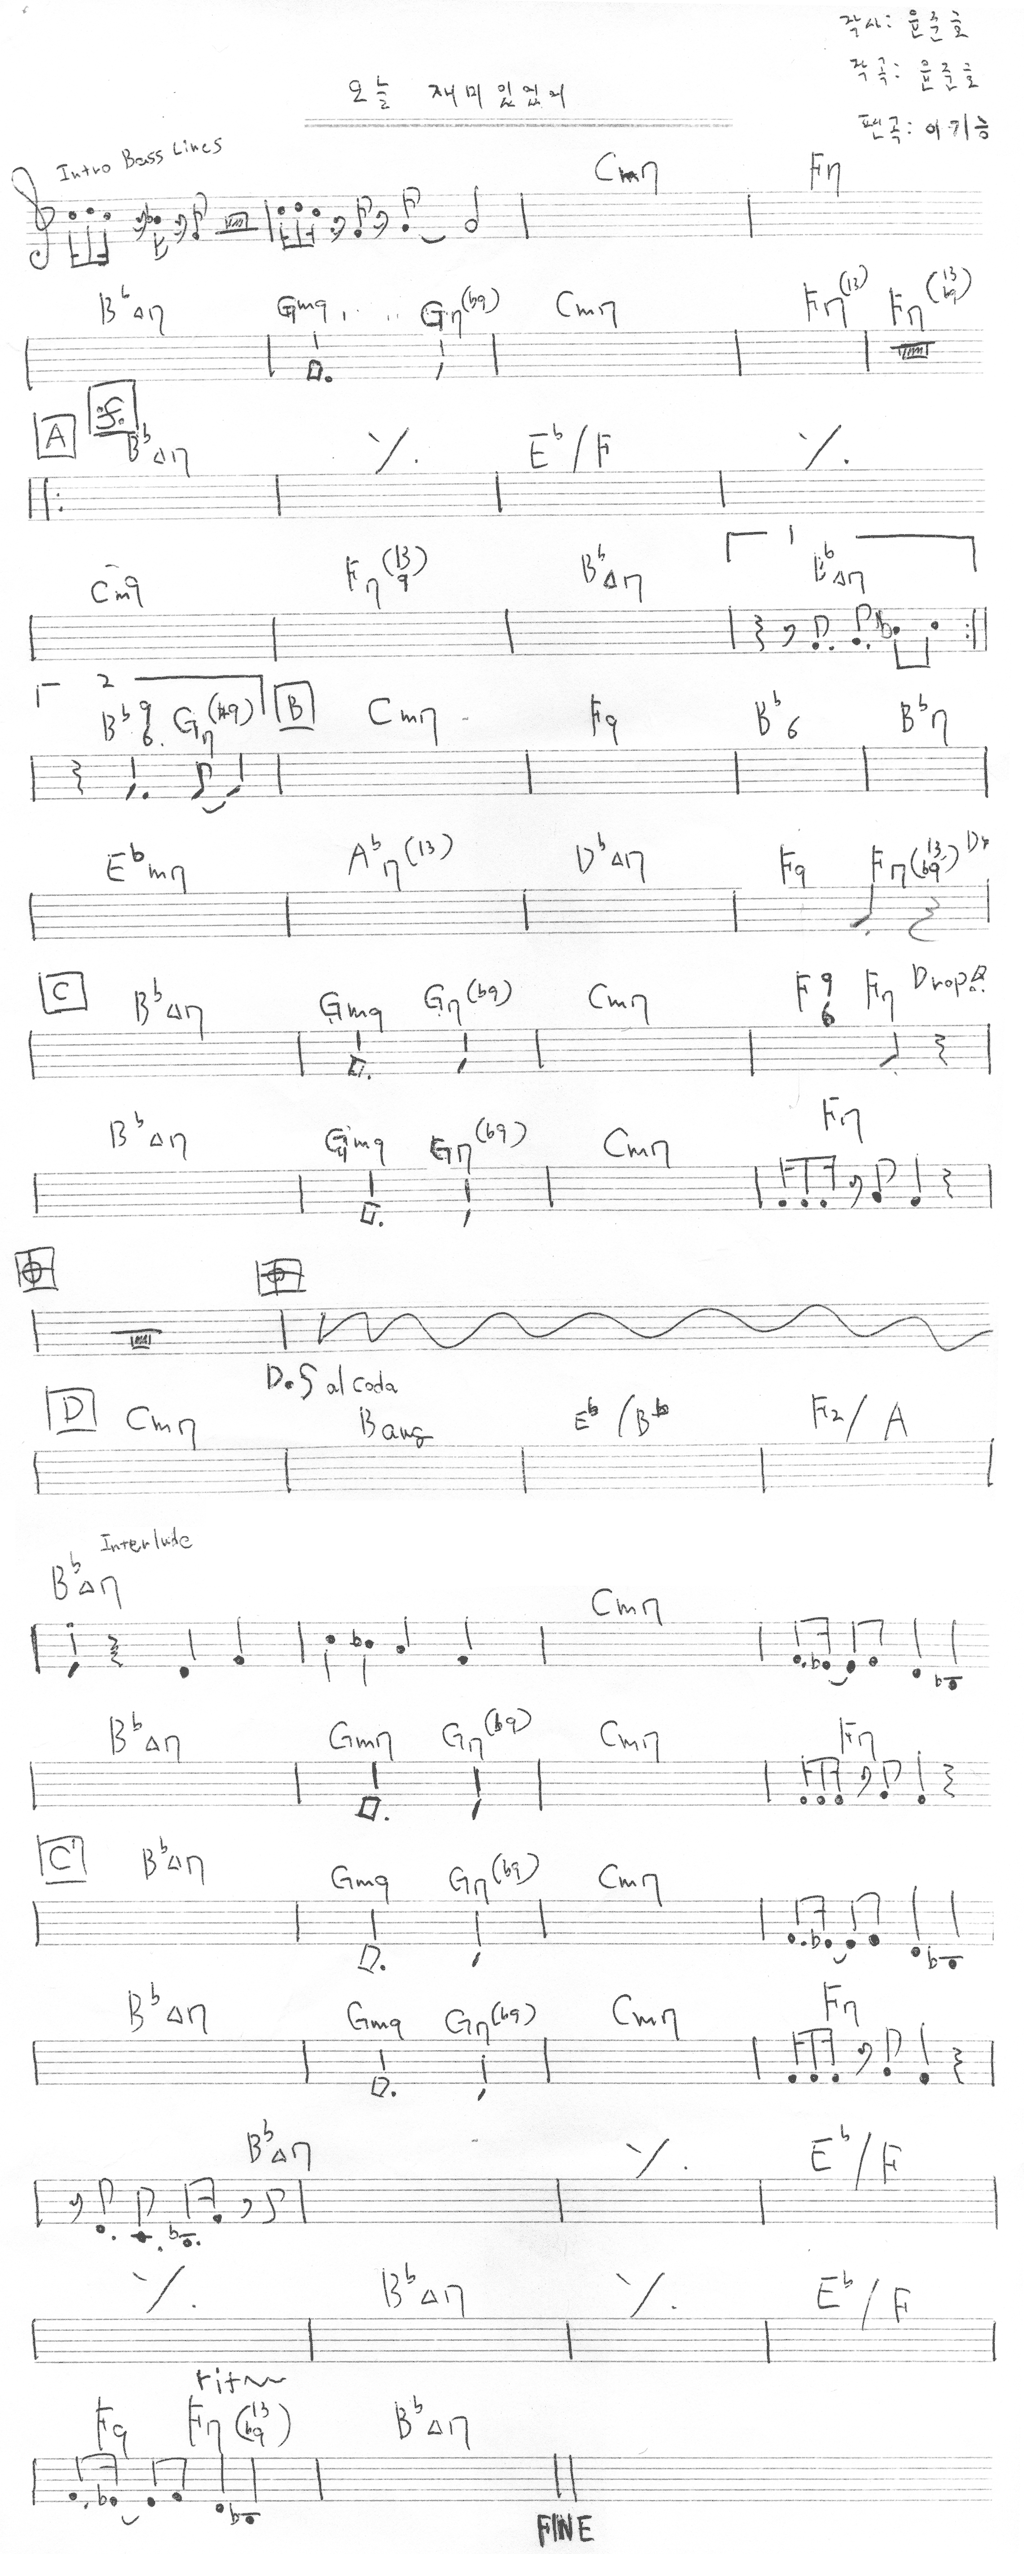 작사: 윤준호
작곡: 윤준호
편곡: 이기승
오늘 재미있었어
Intro Bass Lines
Cm7 F7
B♭△7 Gm9 G7(♭9) Cm7 F7(13) F7(13 ♭9)
A B♭△7 E♭/F
Cm9 F7(13 9) B♭△7 1 B♭△7
2 B♭9 6 G7(#9) B Cm7 F9 B♭6 B♭7
E♭m7 A♭7(13) D♭△7 F9 F7(13 ♭9) Dr
C B♭△7 Gm9 G7(♭9) Cm7 F9 6 F7 Drop
B♭△7 Gm9 G7(♭9) Cm7 F7
D.S al Coda
D Cm7 Baug E♭/B♭ F7/A
Interlude
B♭△7 Cm7
B♭△7 Gm7 G7(♭9) Cm7 F7
C' B♭△7 Gm9 G7(♭9) Cm7
B♭△7 Gm9 G7(♭9) Cm7 F7
B♭△7 E♭/F
B♭△7 E♭/F
rit
F9 F7(13 ♭9) B♭△7
FINE